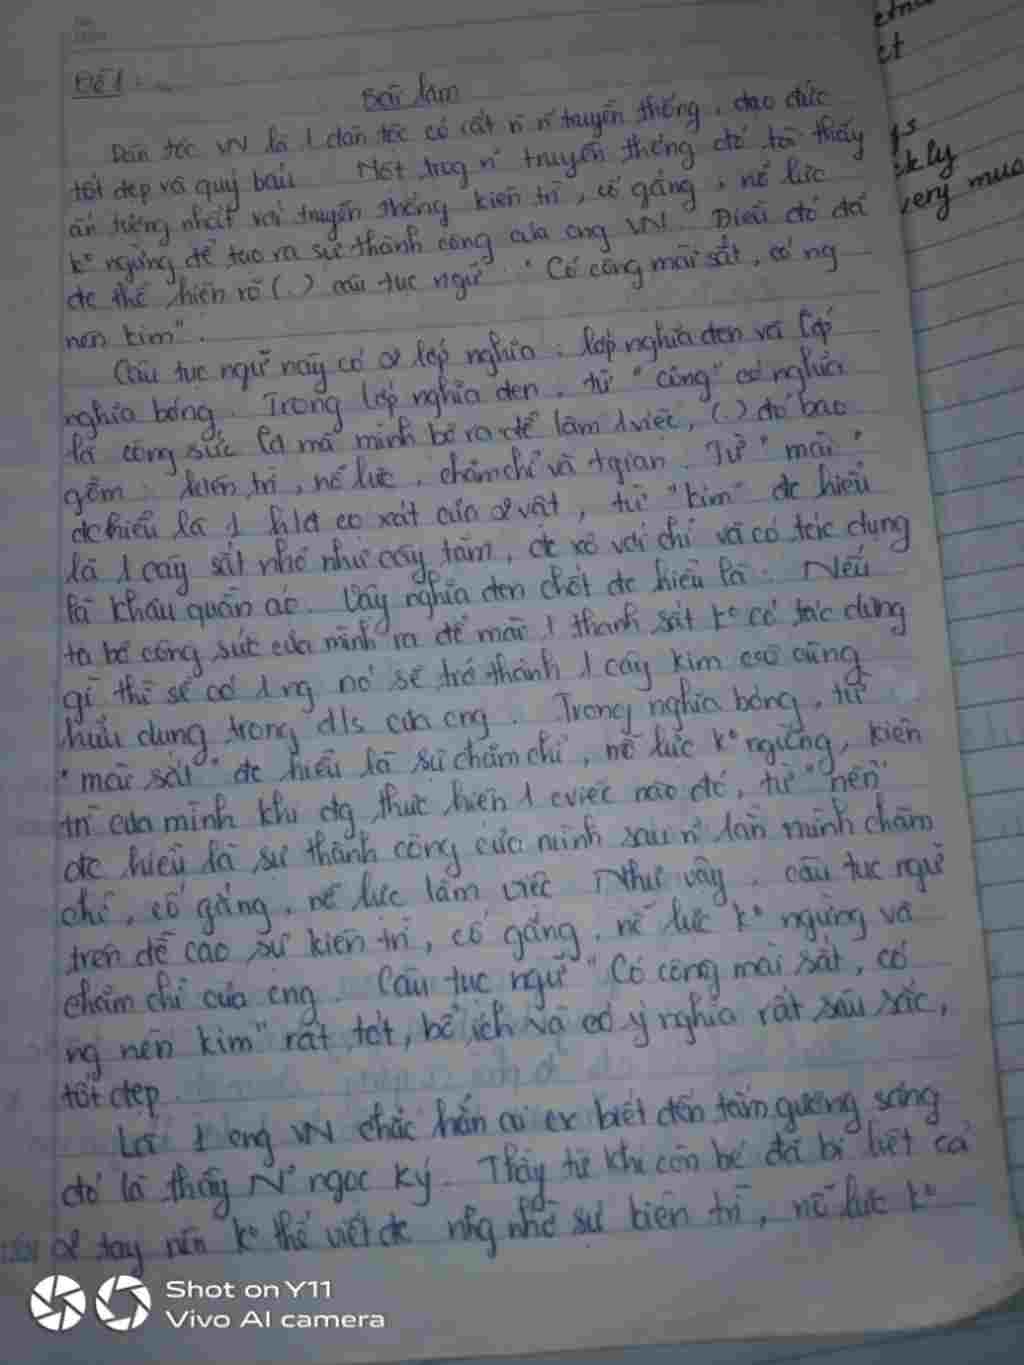 Đề 1:
Bài làm
Dân tộc VN là 1 dân tộc có rất n n' truyền thống, đạo đức
tốt đẹp và quý báu Một trog n' truyền thống đó ta thấy
ấn tượng nhất với truyền thống kiên trì, cố gắng, nỗ lực
k° ngừng để tạo ra sự thành công của cng VN Điều đó đã
đc thể hiện rõ ( ) câu tục ngữ "Có công mài sắt, có ng
nên kim".
Câu tục ngữ này có 2 lớp nghĩa: lớp nghĩa đen và lớp
nghĩa bóng. Trong lớp nghĩa đen, từ "công" có nghĩa
là công sức mà mình bỏ ra để làm 1 việc, ( ) đó bao
gồm: kiên trì, nỗ lực, chăm chỉ và tgian. Từ "mài"
đc hiểu là 1 cọ xát của 2 vật, từ "kim" đc hiểu
là 1 cây sắt nhỏ như cây tăm, đc xỏ với chỉ và có tác dụng
là khâu quần áo. Vậy nghĩa đen chốt đc hiểu là: Nếu
ta bỏ công sức của mình ra để mài 1 thanh sắt k° có tác dụng
gì thì sẽ có 1 ng nó sẽ trở thành 1 cây kim cũng
hữu dụng trong đ/s của cng. Trong nghĩa bóng, từ
"mài sắt" đc hiểu là sự chăm chỉ, nỗ lực k° ngừng, kiên
trì của mình khi đg thực hiện 1 cviệc nào đó, từ "nên"
đc hiểu là sự thành công của mình sau n' lần mình chăm
chỉ, cố gắng, nỗ lực làm việc Như vậy, câu tục ngữ
trên đề cao sự kiên trì, cố gắng, nỗ lực k° ngừng và
chăm chỉ của cng. Câu tục ngữ "Có công mài sắt, có
ng nên kim" rất tốt, bổ ích và có ý nghĩa rất sâu sắc,
tốt đẹp.
Là 1 cng VN chắc hẳn ai cx biết đến tấm gương sáng
đó là thầy N~ ngọc Ký. Thầy từ khi còn bé đã bị liệt cả
2 tay nên k° thể viết đc nhg nhờ sự kiên trì, nỗ lực k°
ct
kly
very muc
Shot on Y11
Vivo AI camera